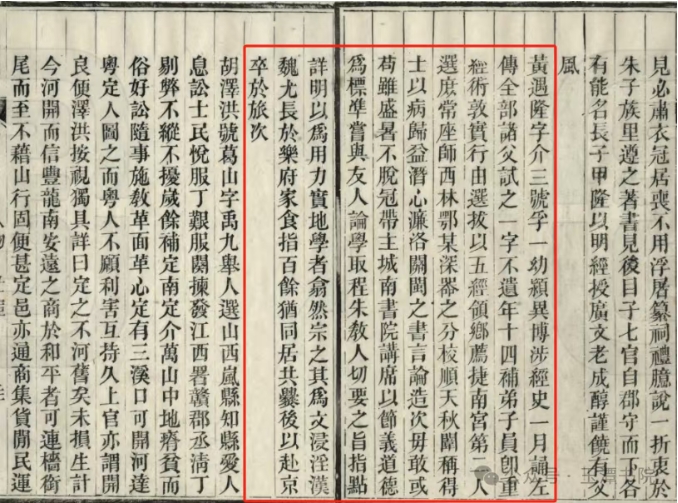 見必肅衣冠居喪不用浮屠纂祠禮臆說一折衷於
朱子族里遵之著書見後目子七官自郡守而下各
有能名長子甲隆以明經授廣文老成醇謹饒有父
風
黃遇隆字介三號孚一幼穎異博涉經史一月誦左
傳全部諸父試之一字不遺年十四補弟子員卽重
經術敦實行由選拔以五經領鄉薦捷南宮第一人
選庶常座師西林鄂某深器之分校順天秋闈稱得
士以病歸益潛心濂洛關閩之書言論造次毋敢或
苟雖盛暑不脫冠帶主城南書院講席以節義道德
爲標準嘗與友人論學取程朱敎人切要之旨指點
詳明以爲用力實地學者翕然宗之其爲文浸淫漢
魏尤長於樂府家食指百餘猶同居共爨後以赴京
卒於旅次
胡澤洪號葛山字禹九舉人選山西嵐縣知縣愛人
息訟士民悅服丁艱服闋揀發江西署贛郡丞淸丁
剔弊不縱不擾歲餘補定南定介萬山中地瘠貧而
俗好訟隨事施敎革面革心定有三溪口可開河達
粵定人圖之而粵人不願利害互持久上官亦謂開
良便澤洪按視獨具詳曰定之不河舊矣未損生計
今河開而信豐龍南安遠之商於和平者可連檣銜
尾而至不藉山行固便甚定邑亦通商集貨開民運
公众号